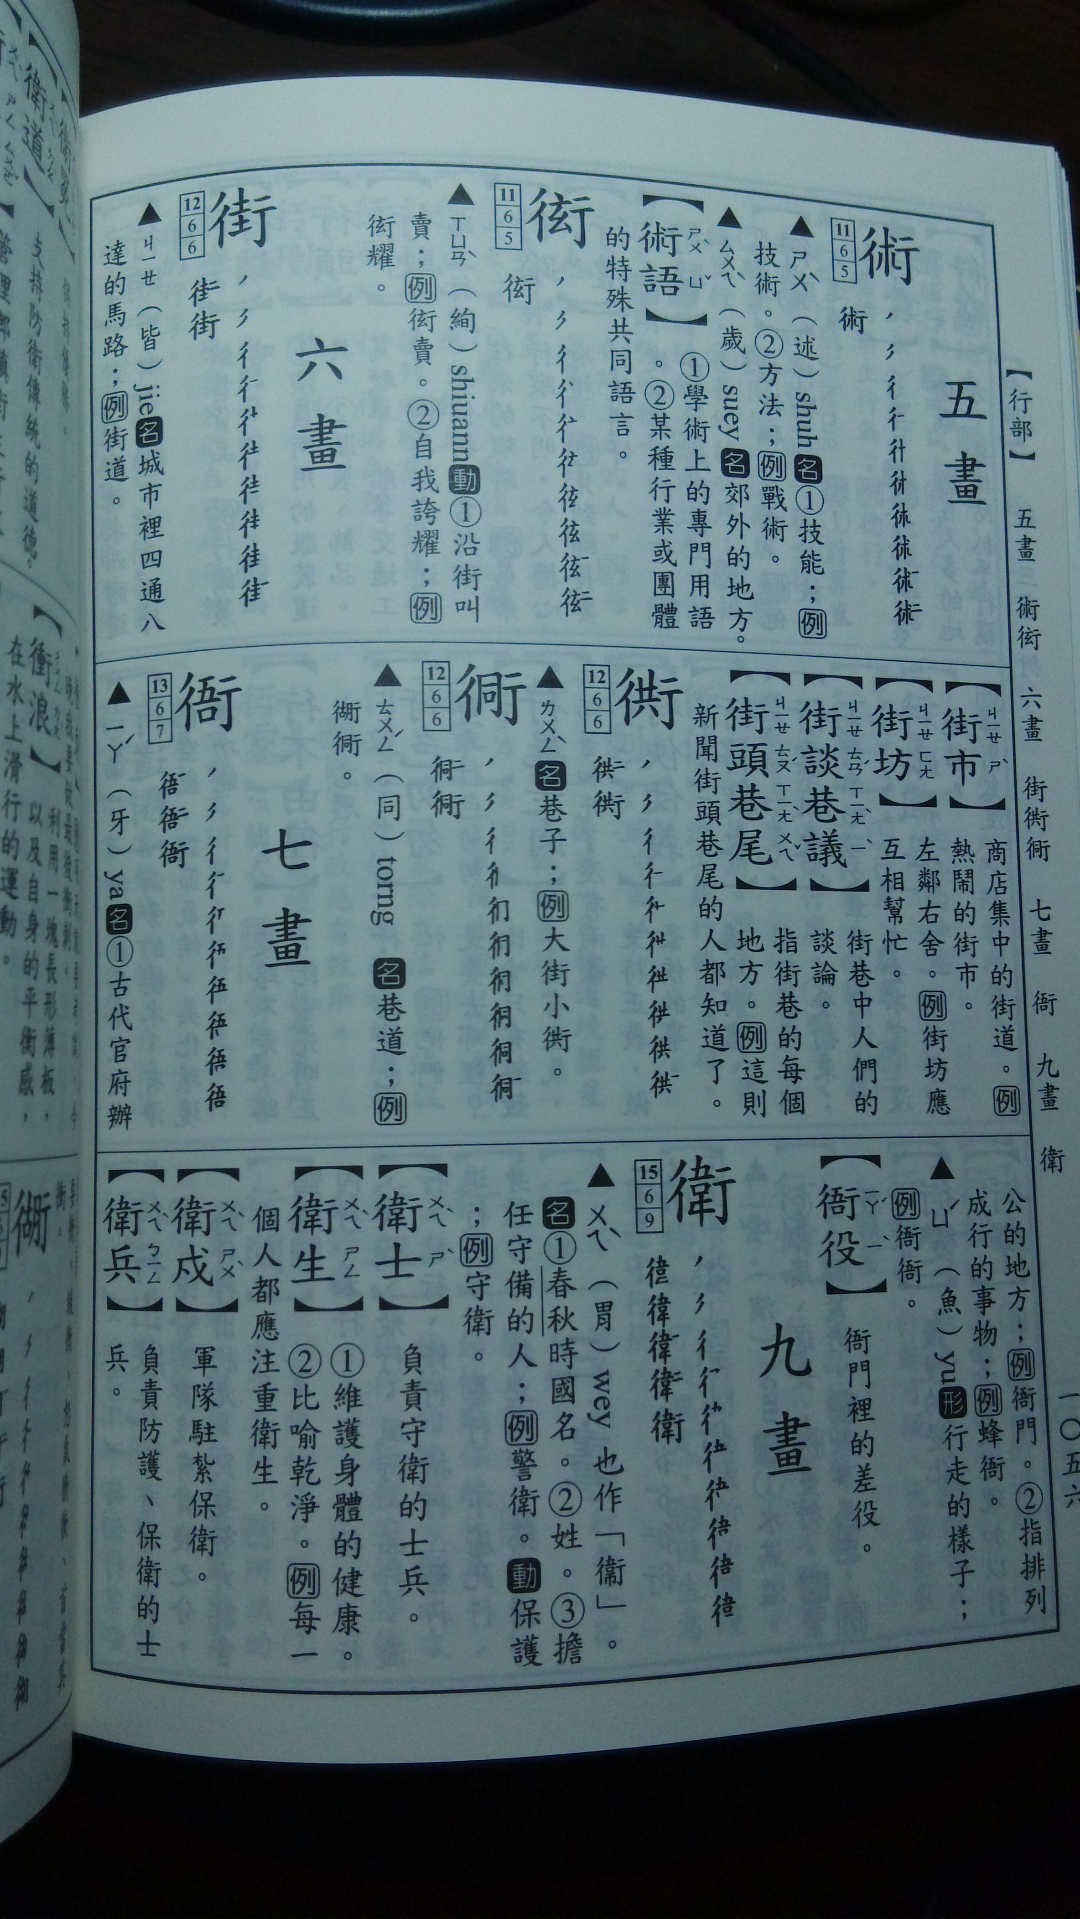 【行部】 五畫 術衒 六畫 街衖衕 七畫 衙 九畫 衛
一〇五六
五畫
術 術
11 6 5
▲ㄕㄨˋ(述)shuh 名①技能;例
技術。②方法;例戰術。
▲ㄙㄨㄟˋ(歲)suey 名郊外的地方。
【術語】 ①學術上的專門用語
ㄕㄨˋ ㄩˇ
。②某種行業或團體
的特殊共同語言。
衒 衒
11 6 5
▲ㄒㄩㄢˋ(絢)shiuann 動①沿街叫
賣;例衒賣。②自我誇耀;例
衒耀。
六畫
街 街
12 6 6
▲ㄐㄧㄝ(皆)jie 名城市裡四通八
達的馬路;例街道。
【街市】 商店集中的街道。例
ㄐㄧㄝ ㄕˋ
熱鬧的街市。
【街坊】 左鄰右舍。例街坊應
ㄐㄧㄝ ㄈㄤ
互相幫忙。
【街談巷議】 街巷中人們的
ㄐㄧㄝ ㄊㄢˊ ㄒㄧㄤˋ ㄧˋ
談論。
【街頭巷尾】 指街巷的每個
ㄐㄧㄝ ㄊㄡˊ ㄒㄧㄤˋ ㄨㄟˇ
地方。例這則
新聞街頭巷尾的人都知道了。
衖 衖
12 6 6
▲ㄌㄨㄥˋ 名巷子;例大街小衖。
衕 衕
12 6 6
▲ㄊㄨㄥˊ(同)torng 名巷道;例
衚衕。
七畫
衙 衙
13 6 7
▲ㄧㄚˊ(牙)ya 名①古代官府辦
公的地方;例衙門。②指排列
成行的事物;例蜂衙。
▲ㄩˊ(魚)yu 形行走的樣子;
例衙衙。
【衙役】 衙門裡的差役。
ㄧㄚˊ ㄧˋ
九畫
衛 衛
15 6 9
▲ㄨㄟˋ(胃)wey 也作「衞」。
名①春秋時國名。②姓。③擔
任守備的人;例警衛。動保護
;例守衛。
【衛士】 負責守衛的士兵。
ㄨㄟˋ ㄕˋ
【衛生】 ①維護身體的健康。
ㄨㄟˋ ㄕㄥ
②比喻乾淨。例每一
個人都應注重衛生。
【衛戍】 軍隊駐紮保衛。
ㄨㄟˋ ㄕㄨˋ
【衛兵】 負責防護、保衛的士
ㄨㄟˋ ㄅㄧㄥ
兵。
【衛道】 支持防衛傳統的道德。
【衝浪】 利用一塊長形薄板,
以及自身的平衡感,
在水上滑行的運動。
衚